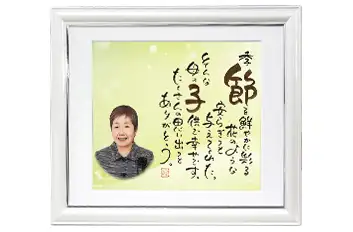 季
節を鮮やかに彩る
花のような
安らぎを
与えてくれた。
そんな
母の子供で幸せです。
たくさんの思い出を
ありがとう。